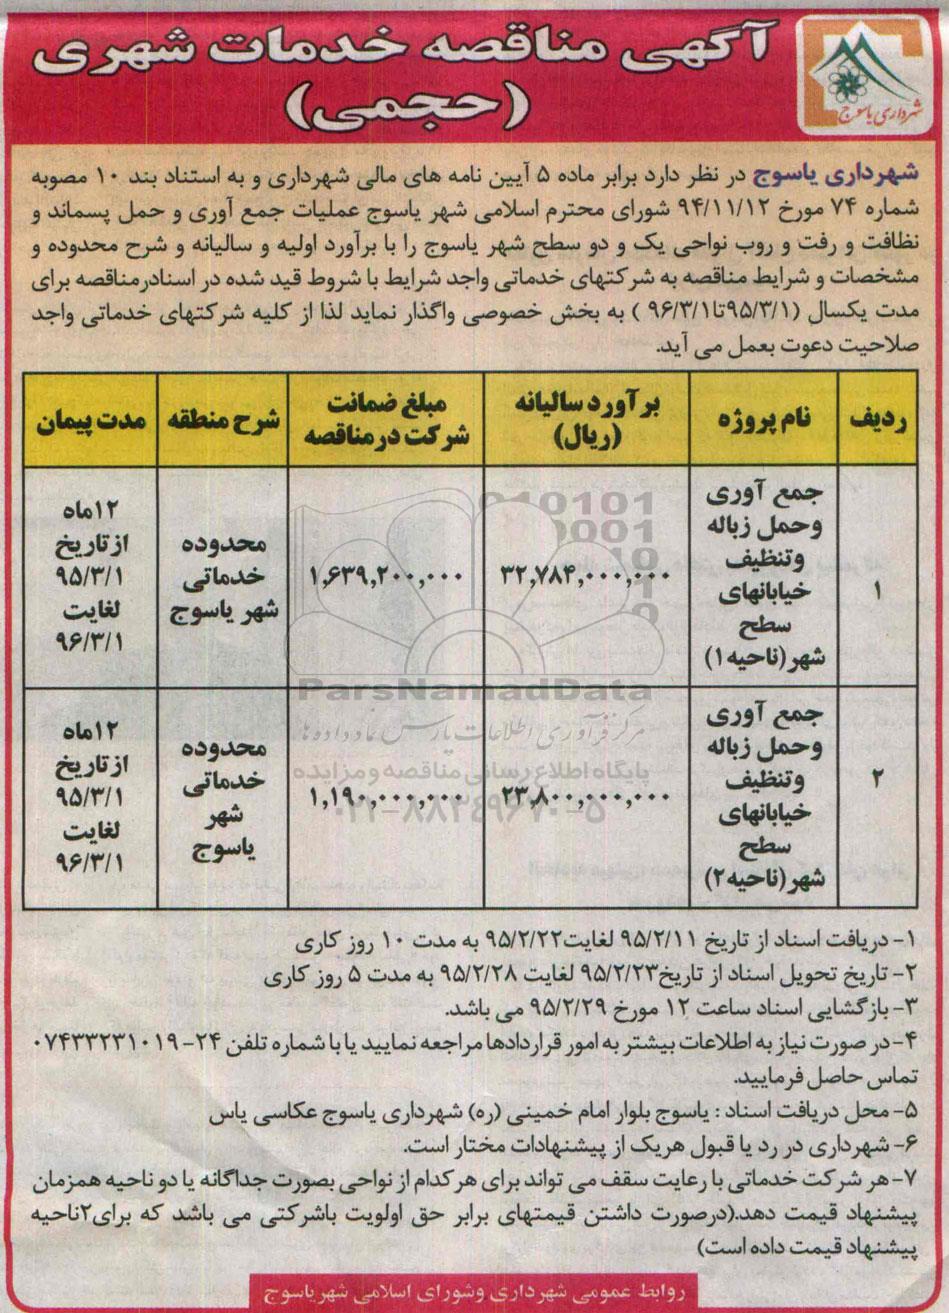 آگهی مناقصه خدمات شهری
(حجمی)
شهرداری یاسوج
شهرداری یاسوج در نظر دارد برابر ماده ۵ آیین نامه های مالی شهرداری و به استناد بند ۱۰ مصوبه
شماره ۷۴ مورخ ۹۴/۱۱/۱۲ شورای محترم اسلامی شهر یاسوج عملیات جمع آوری و حمل پسماند و
نظافت و رفت و روب نواحی یک و دو سطح شهر یاسوج را با برآورد اولیه و سالیانه و شرح محدوده و
مشخصات و شرایط مناقصه به شرکتهای خدماتی واجد شرایط با شروط قید شده در اسنادرمناقصه برای
مدت یکسال (۹۵/۳/۱تا۹۶/۳/۱ ) به بخش خصوصی واگذار نماید لذا از کلیه شرکتهای خدماتی واجد
صلاحیت دعوت بعمل می آید.
ردیف
نام پروژه
برآورد سالیانه
(ریال)
مبلغ ضمانت
شرکت درمناقصه
شرح منطقه
مدت پیمان
۱
جمع آوری
وحمل زباله
وتنظیف
خیابانهای
سطح
شهر(ناحیه۱)
۳۲,۷۸۴,۰۰۰,۰۰۰
۱,۶۳۹,۲۰۰,۰۰۰
محدوده
خدماتی
شهر یاسوج
۱۲ماه
ازتاریخ
۹۵/۳/۱
لغایت
۹۶/۳/۱
۲
جمع آوری
وحمل زباله
وتنظیف
خیابانهای
سطح
شهر(ناحیه۲)
۲۳,۸۰۰,۰۰۰,۰۰۰
۱,۱۹۰,۰۰۰,۰۰۰
محدوده
خدماتی
شهر
یاسوج
۱۲ماه
ازتاریخ
۹۵/۳/۱
لغایت
۹۶/۳/۱
ParsNamadData
مرکز فرآوری اطلاعات پارس نماد داده ها
پایگاه اطلاع رسانی مناقصه و مزایده
۰۲۱-۸۸۳۴۹۶۷۰-۵
۱- دریافت اسناد از تاریخ ۹۵/۲/۱۱ لغایت۹۵/۲/۲۲ به مدت ۱۰ روز کاری
۲- تاریخ تحویل اسناد از تاریخ۹۵/۲/۲۳ لغایت ۹۵/۲/۲۸ به مدت ۵ روز کاری
۳- بازگشایی اسناد ساعت ۱۲ مورخ ۹۵/۲/۲۹ می باشد.
۴- در صورت نیاز به اطلاعات بیشتر به امور قراردادها مراجعه نمایید یا با شماره تلفن ۲۴-۰۷۴۳۳۲۳۱۰۱۹
تماس حاصل فرمایید.
۵- محل دریافت اسناد : یاسوج بلوار امام خمینی (ره) شهرداری یاسوج عکاسی یاس
۶- شهرداری در رد یا قبول هریک از پیشنهادات مختار است.
۷- هر شرکت خدماتی با رعایت سقف می تواند برای هر کدام از نواحی بصورت جداگانه یا دو ناحیه همزمان
پیشنهاد قیمت دهد.(درصورت داشتن قیمتهای برابر حق اولویت باشرکتی می باشد که برای۲ناحیه
پیشنهاد قیمت داده است)
روابط عمومی شهرداری وشورای اسلامی شهریاسوج